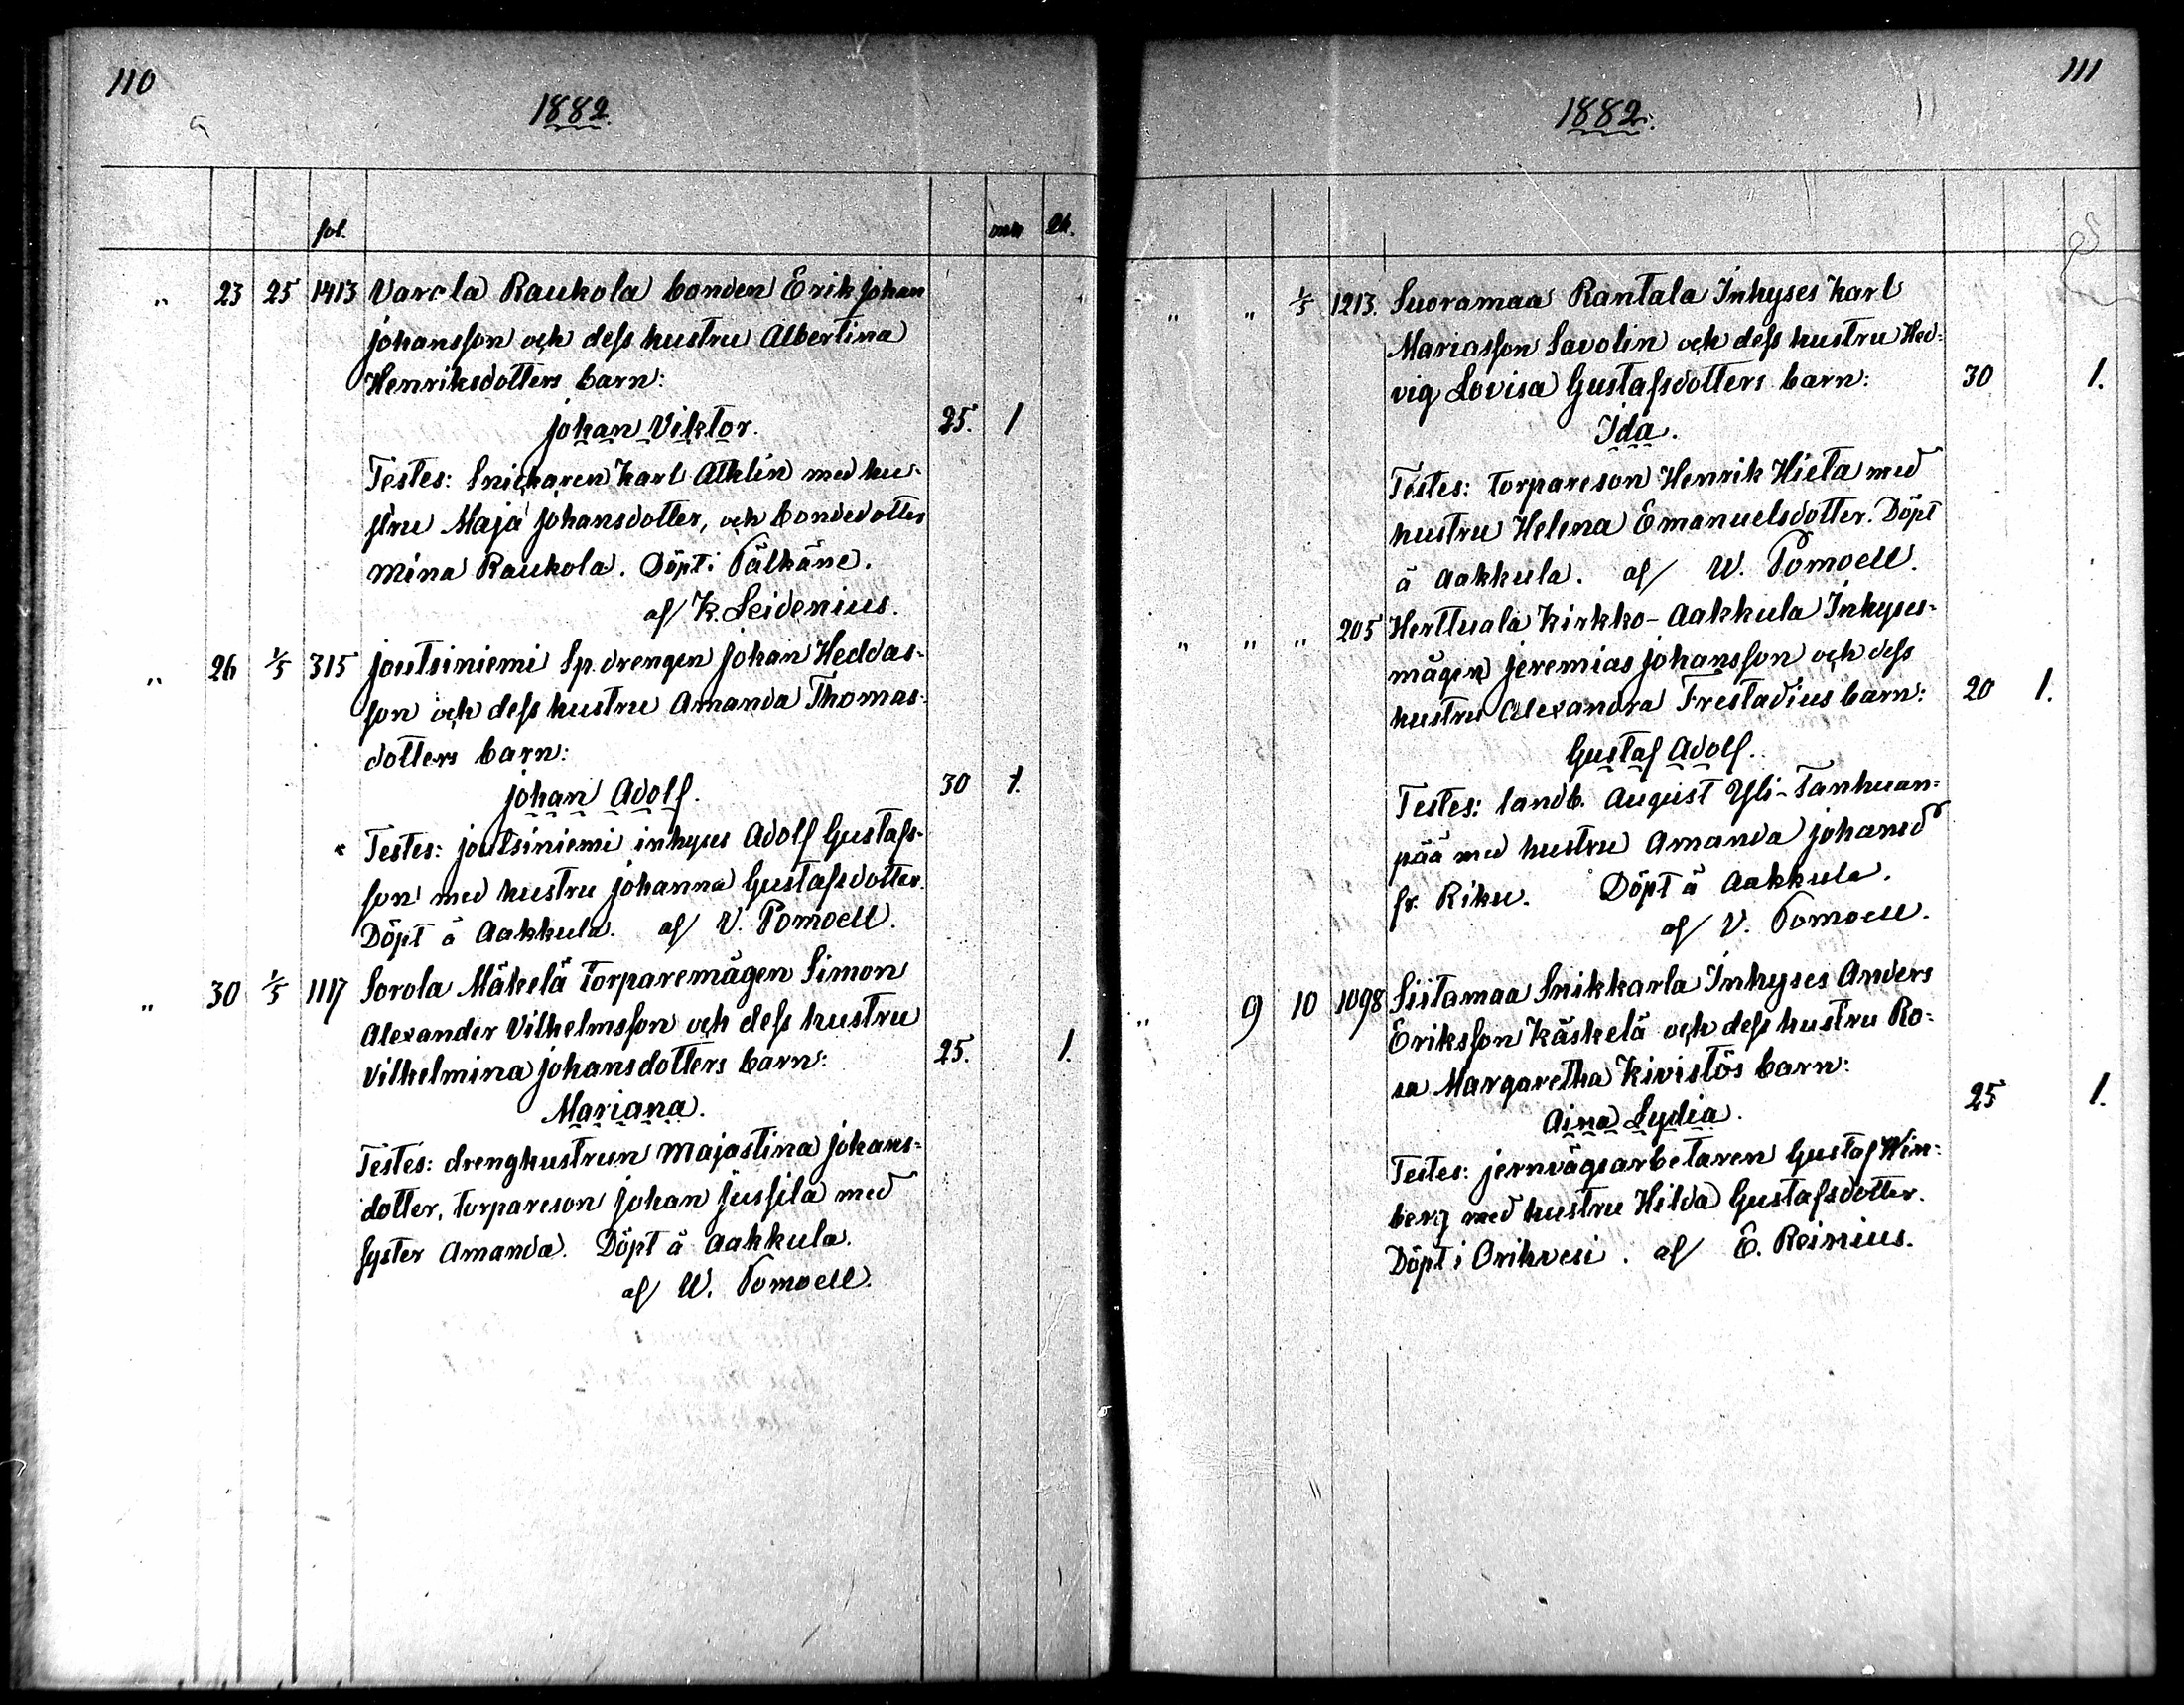 110
1882.
fol.
„ 23 25 1413 Varola Raukola bonden Erik Johan
Johansson och dess hustru Albertina
Henriksdotters barn:
Johan Viktor. 25. 1
Testes: Snickaren Karl Athlin med hu-
stru Maja Johansdotter, och bondedotter
Mina Raukola. Döpt i Pälkäne.
af K. Leidenius.
„ 26 1/5 315 Joutsiniemi Sp. drengen Johan Heddas-
son och dess hustru Amanda Thomas-
dotters barn:
Johan Adolf. 30 1.
Testes: Joutsiniemi inhyses Adolf Gustafs-
son med hustru Johanna Gustafsdotter.
Döpt å Aakkula. af V. Pomoell.
„ 30 1/5 1117 Sorola Mäkelä torparemågen Simon
Alexander Vilhelmsson och dess hustru
Vilhelmina Johansdotters barn: 25. 1.
Mariana.
Testes: drenghustrun Majastina Johans-
dotter, torpareson Johan Jussila med
syster Amanda. Döpt å Aakkula.
af W. Pomoell.
111
1882.
„ „ 1/5 1213. Suoramaa Rantala Inhyses Karl
Mariasson Savolin och dess hustru Hed-
vig Lovisa Gustafsdotters barn: 30 1.
Ida.
Testes: torpareson Henrik Hieta med
hustru Helena Emanuelsdotter. Döpt
å Aakkula. af W. Pomoell.
„ „ „ 205 Herttuala Kirkko-Aakkula Inhyses-
mågen Jeremias Johansson och dess
hustru Alexandra Frestadius barn: 20 1.
Gustaf Adolf.
Testes: landb. August Yli-Tanhuan-
pää med hustru Amanda Johansd
fr. Riku. Döpt å Aakkula.
af V. Pomoell.
„ 9 10 1098 Siitamaa Snikkarla Inhyses Anders
Eriksson Käskelä och dess hustru Ro-
sa Margaretha Kivistös barn:
Aina Lydia. 25 1.
Testes: jernvägsarbetaren Gustaf Win-
berg med hustru Hilda Gustafsdotter.
Döpt i Orihvesi. af E. Reinius.